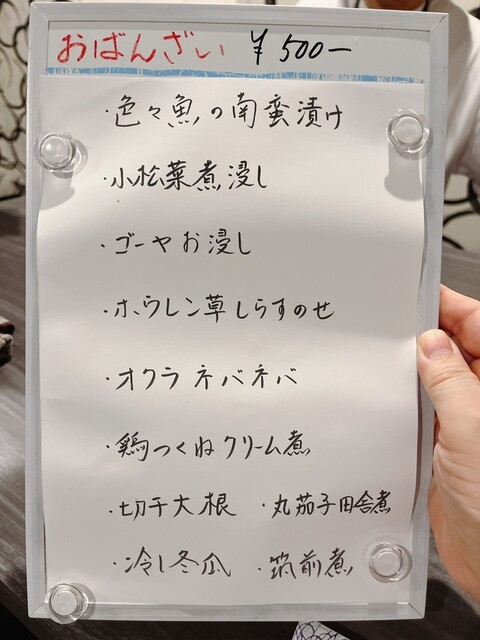 おばんざい ¥500-
・色々魚の南蛮漬け
・小松菜煮浸し
・ゴーヤお浸し
・ホウレン草しらすのせ
・オクラネバネバ
・鶏つくねクリーム煮
・切干大根 ・丸茄子田舎煮
・冷し冬瓜 ・筑前煮